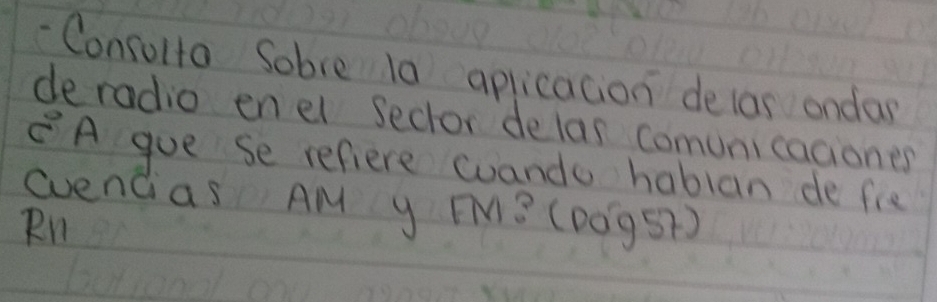 - Consulta sobre la aplicación de las ondas
de radio en el sector de las comunicaciones
¿A que se refiere cuando hablan de fre
cuencias AM y FM? (pag 57)
R//